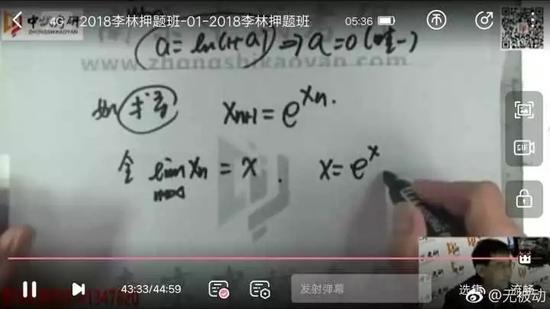 4G 2018李林押题班-01-2018李林押题班 05:36
(a = ln(1+a)) ⇒ a=0 (唯一)
www.zhongshikaoyan.
如 Xn+1 = e^Xn.
令 lim Xn = x . x = e^x
n→∞
43:33/44:59 发射弹幕 选集 流畅
@无被动